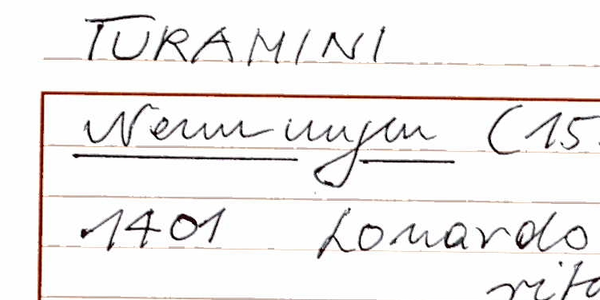 TURAMINI
Nennungen (15
1401 Lonardo